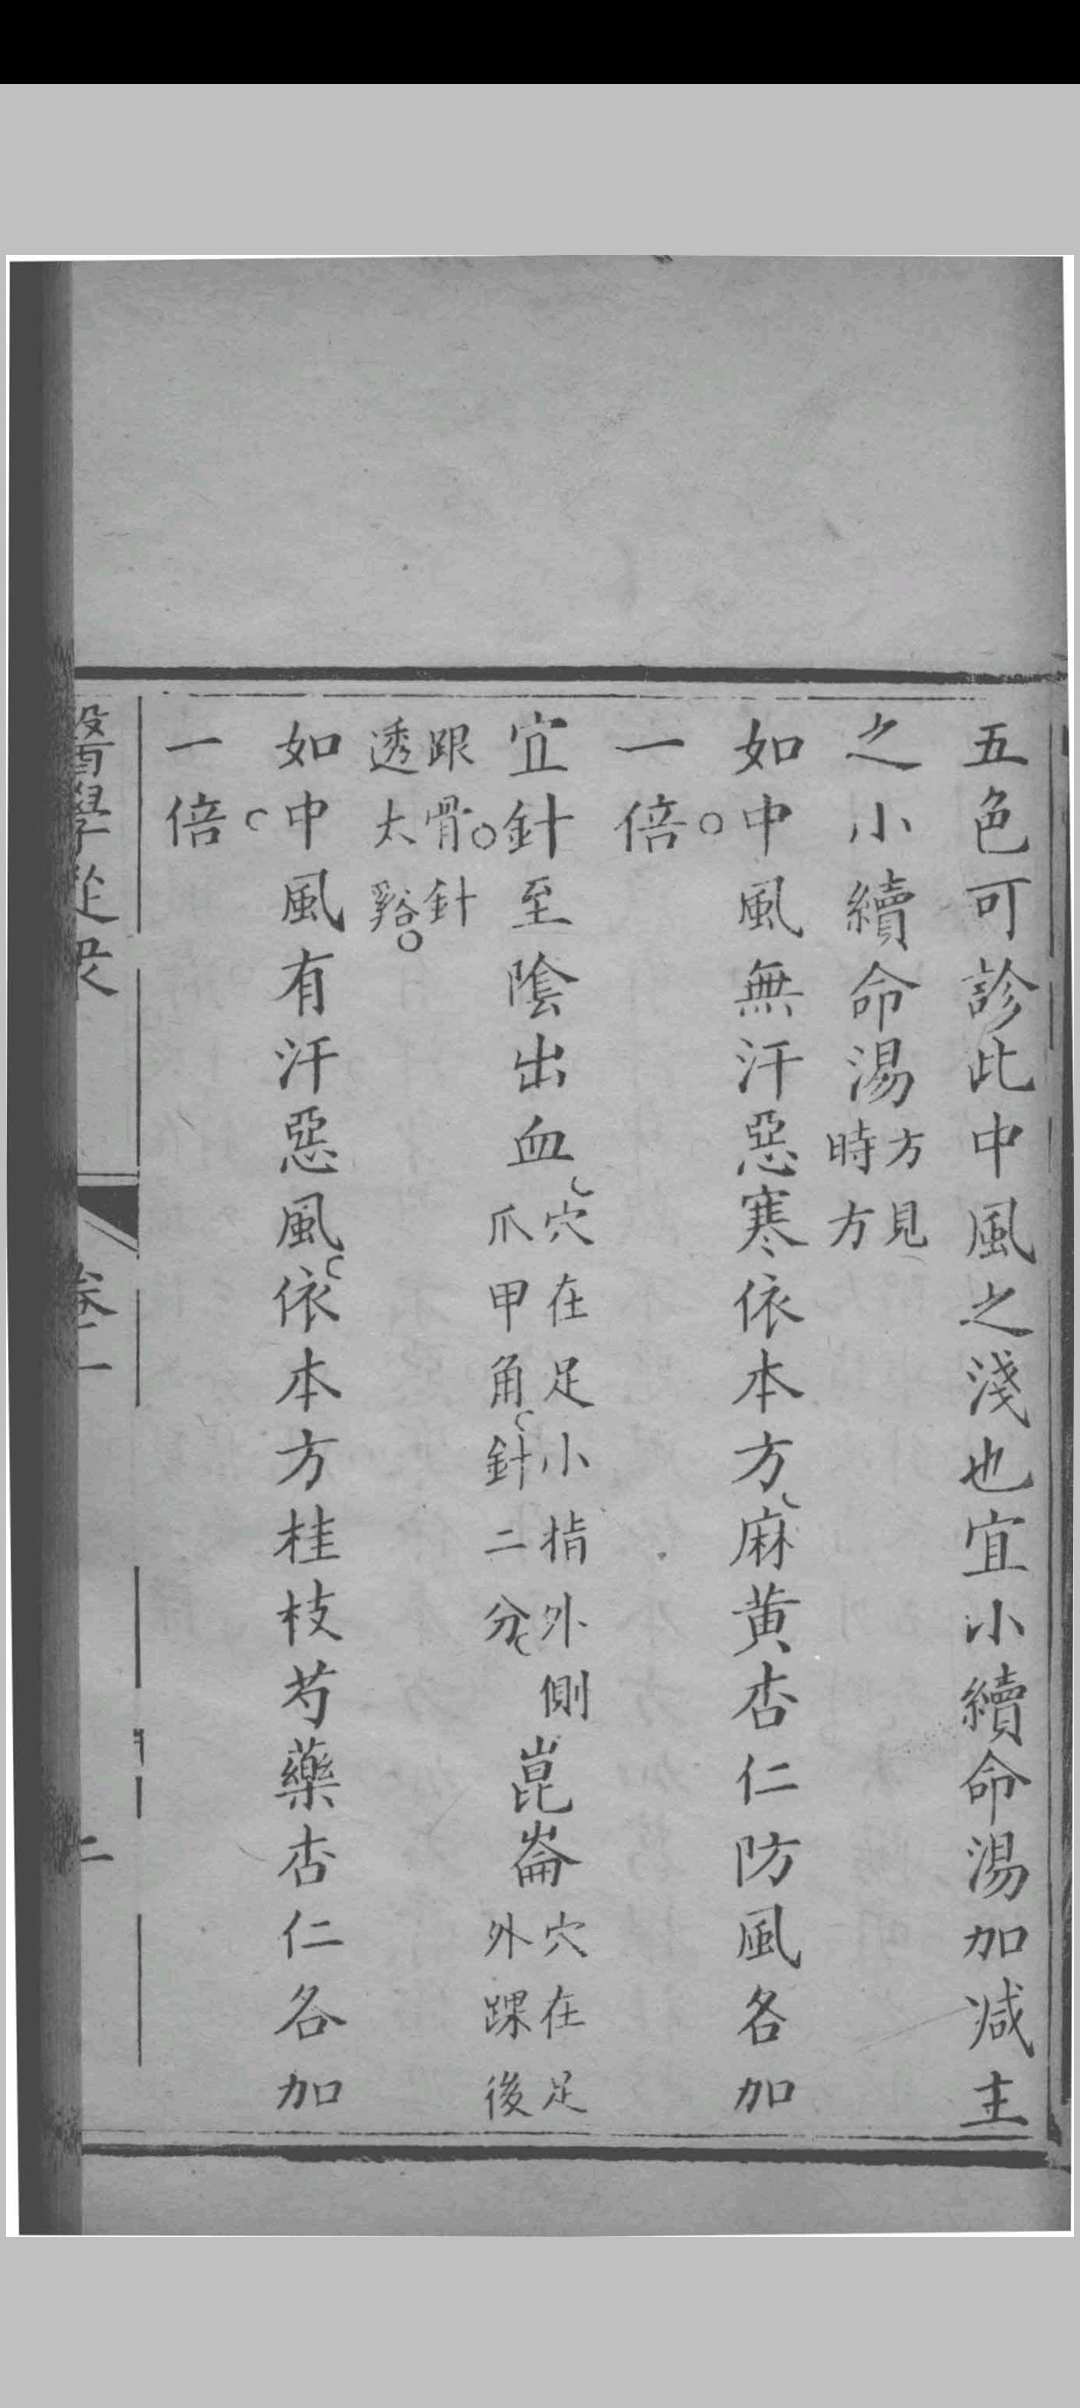 五色可診此中風之淺也宜小續命湯加減主
之小續命湯方見時方
如中風無汗惡寒依本方麻黄杏仁防風各加
一倍
宜針至陰出血穴在足小指外側爪甲角針二分崑崙穴在足外踝後
跟骨針透太谿
如中風有汗惡風依本方桂枝芍藥杏仁各加
一倍
醫學從衆 卷一 二